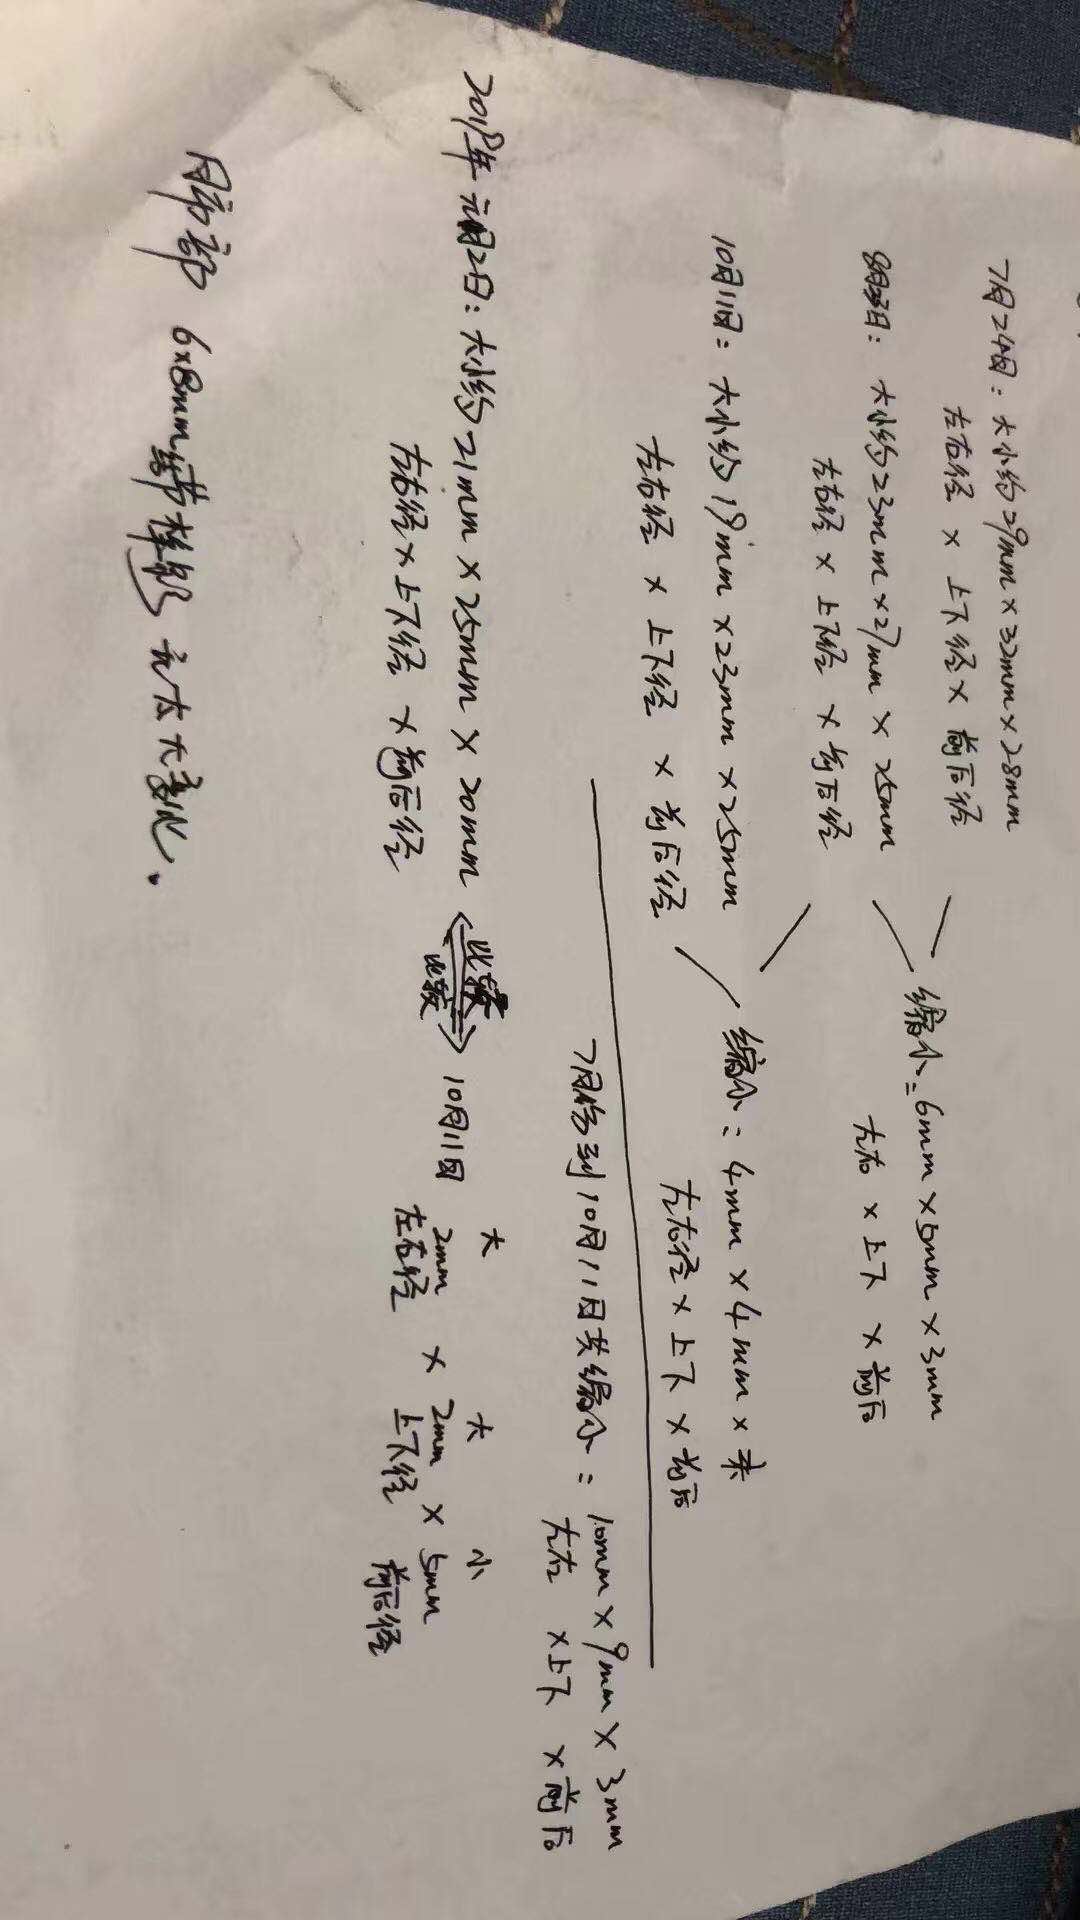 7月24日：大小约29mm×32mm×28mm
左右径 × 上下径 × 前后径
缩小：6mm×5mm×3mm
左右 × 上下 × 前后
大小约23mm×27mm×25mm
左右径 × 上下径 × 前后径
10月11日：大小约19mm×23mm×25mm
左右径 × 上下径 × 前后径
缩小：4mm×4mm×未
左右径 × 上下 × 前后
7月份到10月11日共缩小：10mm×9mm×3mm
左右 ×上下 ×前后
2018年元月2日：大小约21mm×25mm×20mm 比较 10月11日
比较
大 大 小
2mm × 2mm × 5mm
左右径×上下径×前后径
左右径 上下径 前后径
肺部 6×8mm结节样影 无太大变化.